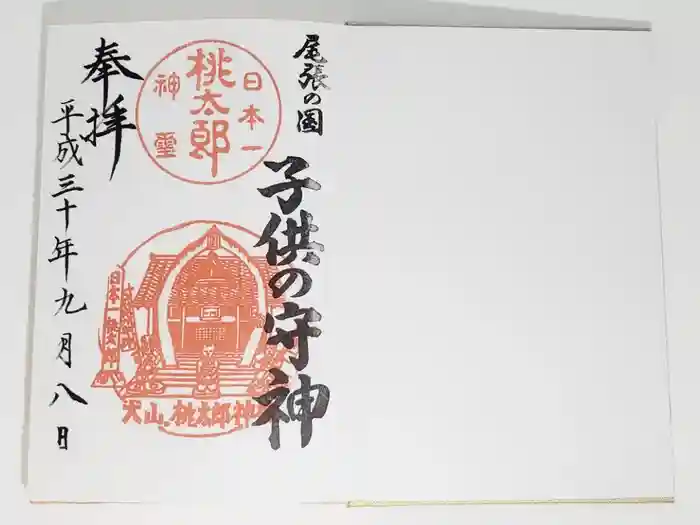 尾張の国
子供の守神
日本一
桃太郎
神霊
奉拝
平成三十年九月八日
日本一桃太郎
犬山.桃太郎神